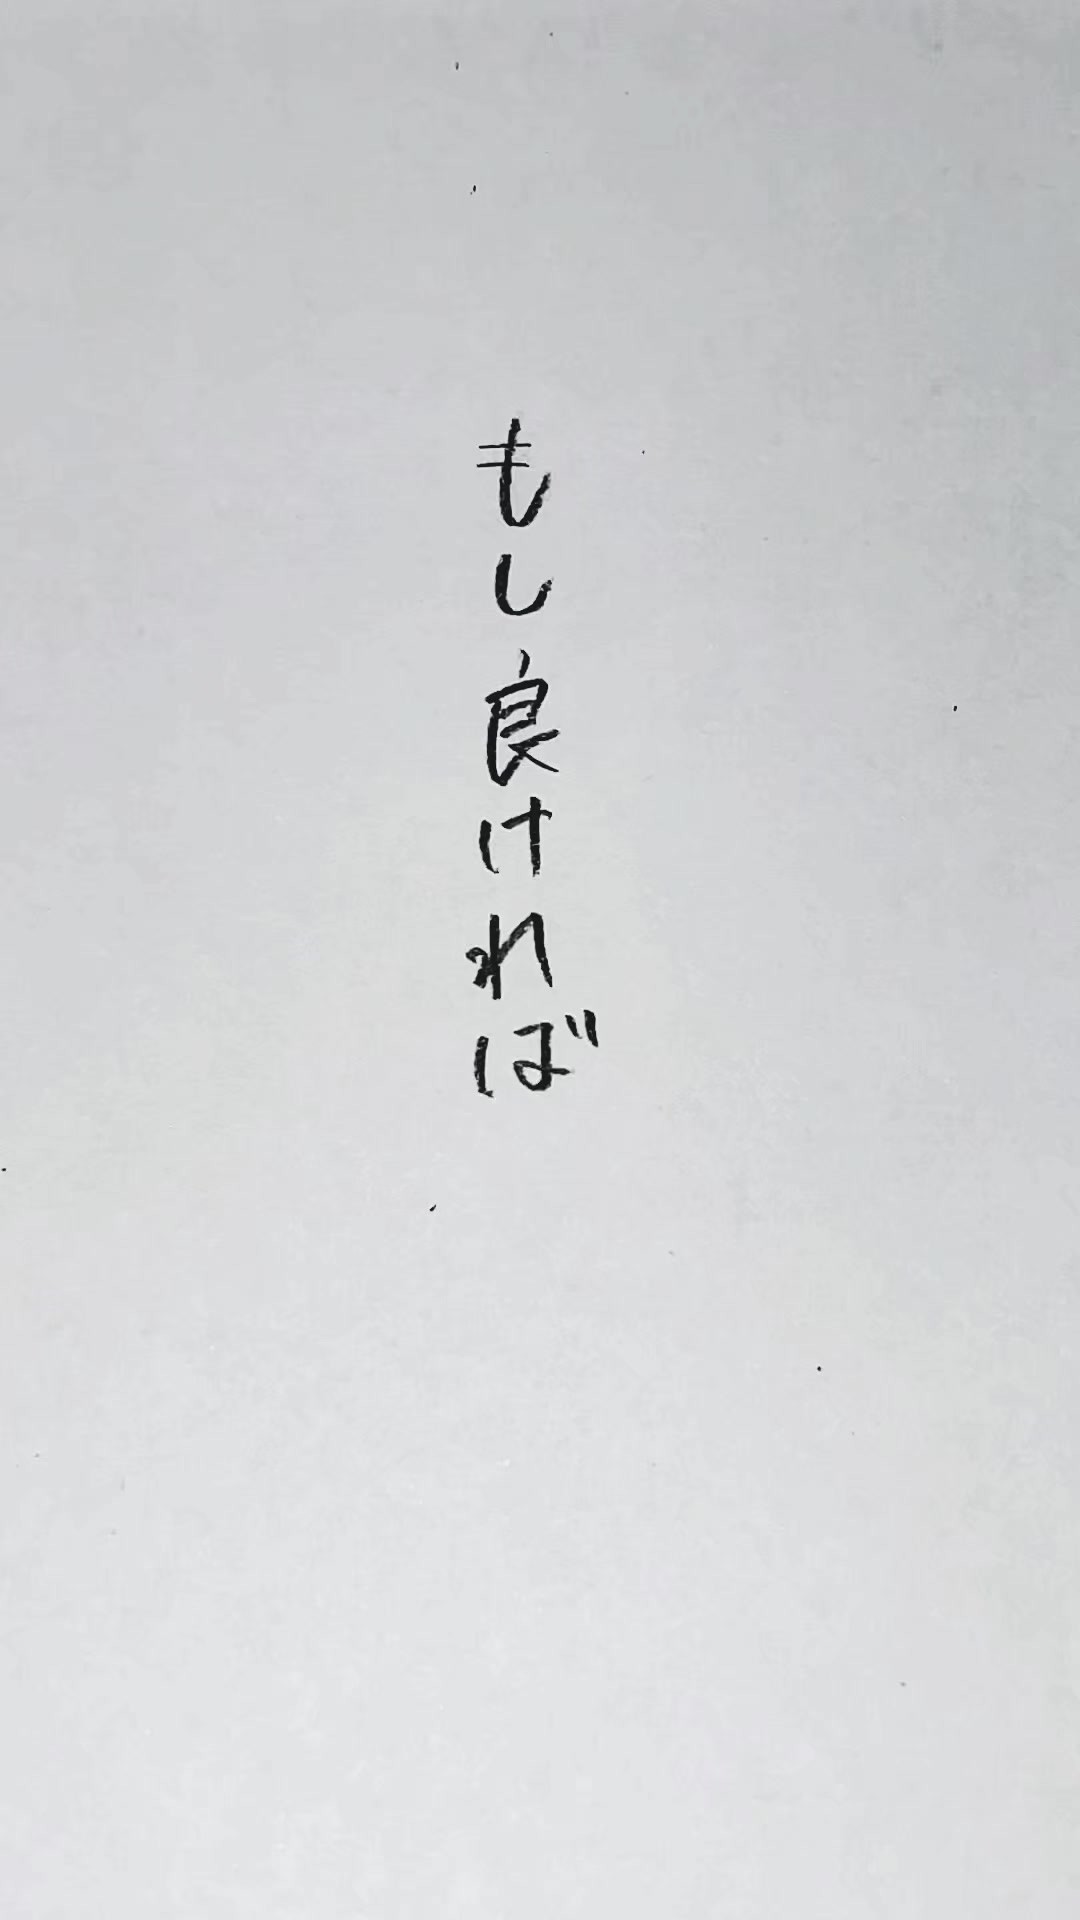 もし良ければ